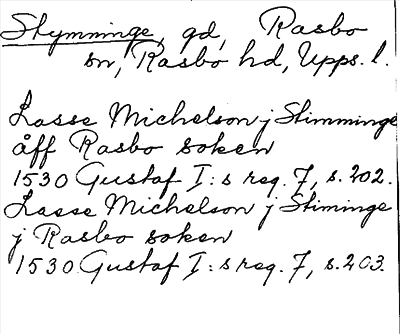 Skymminge, gd, Rasbo
sn, Rasbo hd, Upps. l.
Lasse Michelson j Stimminge
åff Rasbo soken
1530 Gustaf I:s reg. 7, s. 202.
Lasse Michelson j Stiminge
j Rasbo soken
1530 Gustaf I:s reg. 7, s. 203.